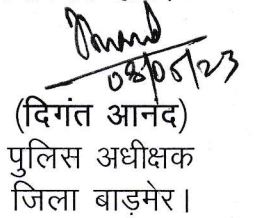 Anand
08/05/23
(दिगंत आनंद)
पुलिस अधीक्षक
जिला बाड़मेर।